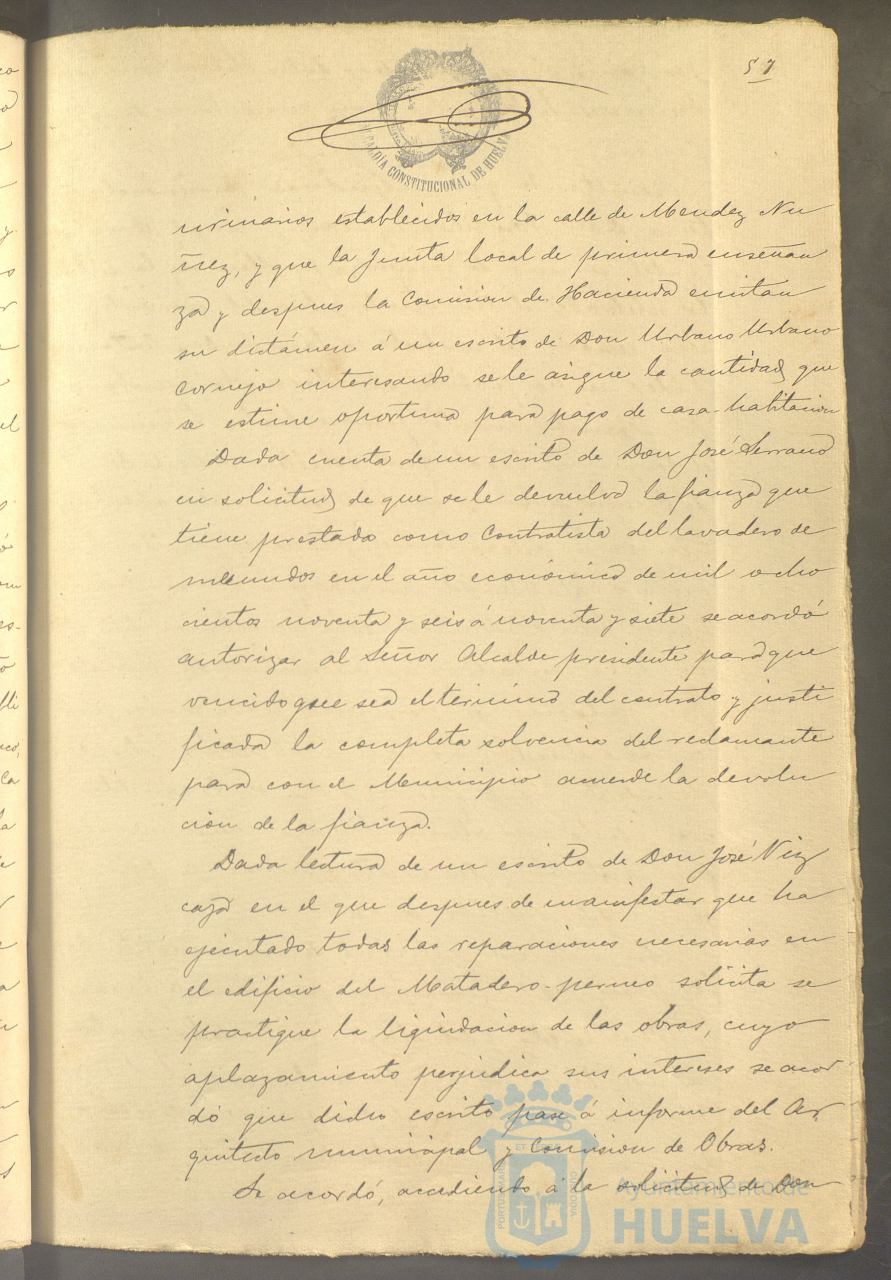 57
ALCALDÍA CONSTITUCIONAL DE HUELVA
urinarios establecidos en la calle de Mendez Nu
ñez, y que la Junta local de primera enseñan
za y despues la Comision de Hacienda emitan
su dictámen á un escrito de Don Urbano Urbano
Cornejo interesando se le asigne la cantidad que
se estime oportuna para pago de casa-habitacion
Dada cuenta de un escrito de Don José Serrano
en solicitud de que se le devuelva la fianza que
tiene prestada como Contratista del lavadero de
menudos en el año económico de mil ocho
cientos noventa y seis á noventa y siete se acordó
autorizar al Señor Alcalde presidente para que
vencido que sea el termino del contrato y justi
ficada la completa solvencia del reclamante
para con el Municipio acuerde la devolu
cion de la fianza.
Dada lectura de un escrito de Don José Viz
caya en el que despues de manifestar que ha
ejecutado todas las reparaciones necesarias en
el edificio del Matadero-perneo solicita se
practique la liquidacion de las obras, cuyo
aplazamiento perjudica sus intereses se acor
dó que dicho escrito pase á informe del Ar
quitecto municipal y Comision de Obras.
Se acordó, accediendo á la solicitud de Don
Ayuntamiento de
HUELVA